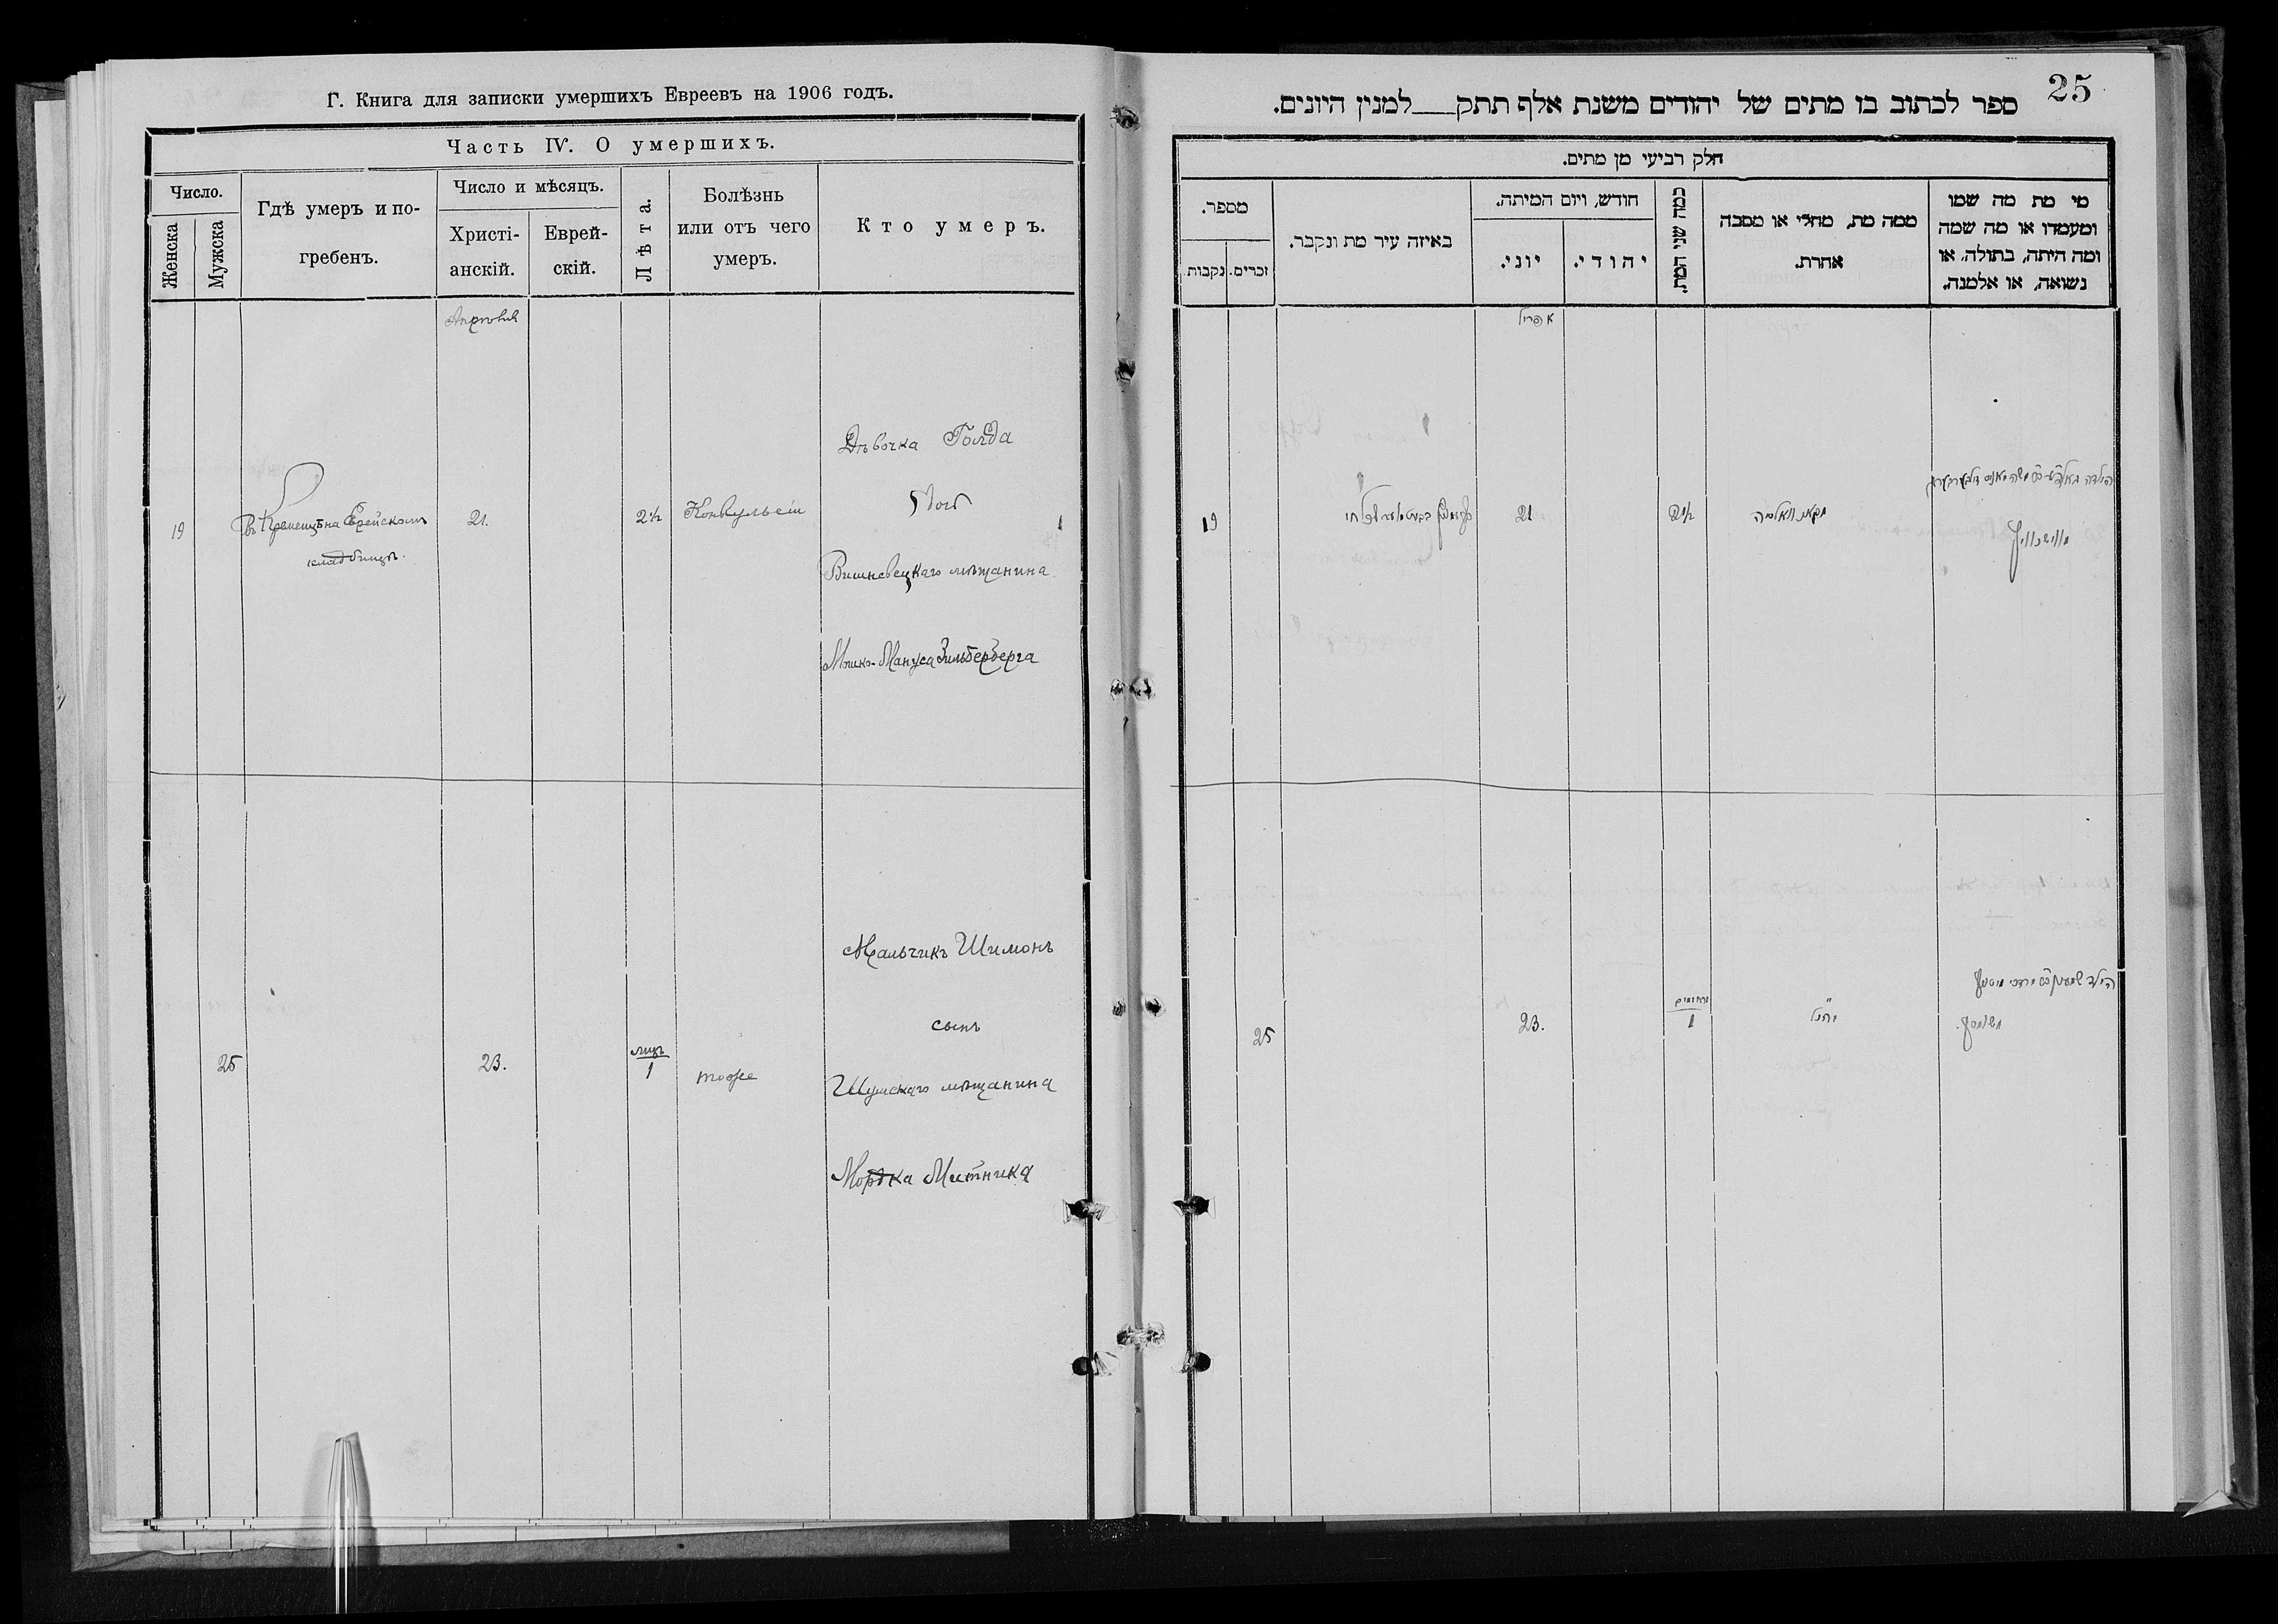 Г. Книга для записки умершихъ Евреевъ на 1906 годъ.
Часть IV. О умершихъ.
Число.
Женска
Мужска
Гдѣ умеръ и по-
гребенъ.
Число и мѣсяцъ.
Христі-
анскій.
Еврей-
скій.
Лѣта.
Болѣзнь
или отъ чего
умеръ.
Кто умеръ.
Апрѣля
19
Въ Кременцѣ на Еврейскомъ
кладбищѣ.
21.
2½
Конвульсіи
Дѣвочка Голда
дочь
Вишневецкаго мѣщанина
Мошко-Мануса Зильберберга
25
23.
мѣсяцъ
1
тоже
Мальчикъ Шимонъ
сынъ
Шумскаго мѣщанина
Мордка Митника
25
ספר לכתוב בו מתים של יהודים משנת אלף תתק___למנין היונים.
חלק רביעי מן מתים.
מספר.
נקבות
זכרים.
באיזה עיר מת ונקבר.
חודש, ויום המיתה.
יוני.
יהודי.
כמה שני המת.
ממה מת, מחלי או מסבה
אחרת.
מי מת מה שמו
ומעמדו או מה שמה
ומה היתה, בתולה, או
נשואה, או אלמנה.
אפריל
19
21
2½
הילדה
25
23.
1
הילד שמעון